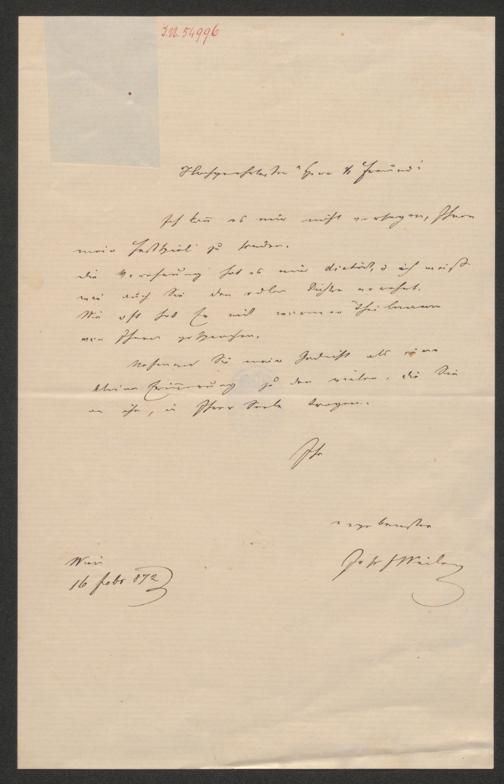 I.N. 54996
Hochgeehrtester Herr & Freund!
Ich kann es mir nicht versagen, Ihnen
mein Festspiel zu senden.
Die Verehrung hat es mir dictirt, u ich weiß
wie auch Sie den edlen Dichter verehrt.
Wie oft hat Er mit warmer Theilnahme
von Ihnen gesprochen.
Nehmen Sie mein Gedicht als eine
kleine Erinnerung zu den vielen, die Sie
an ihn, in Ihrer Seele tragen.
Ihr
ergebenster
Josef Weilen
Wien
16 Febr 872